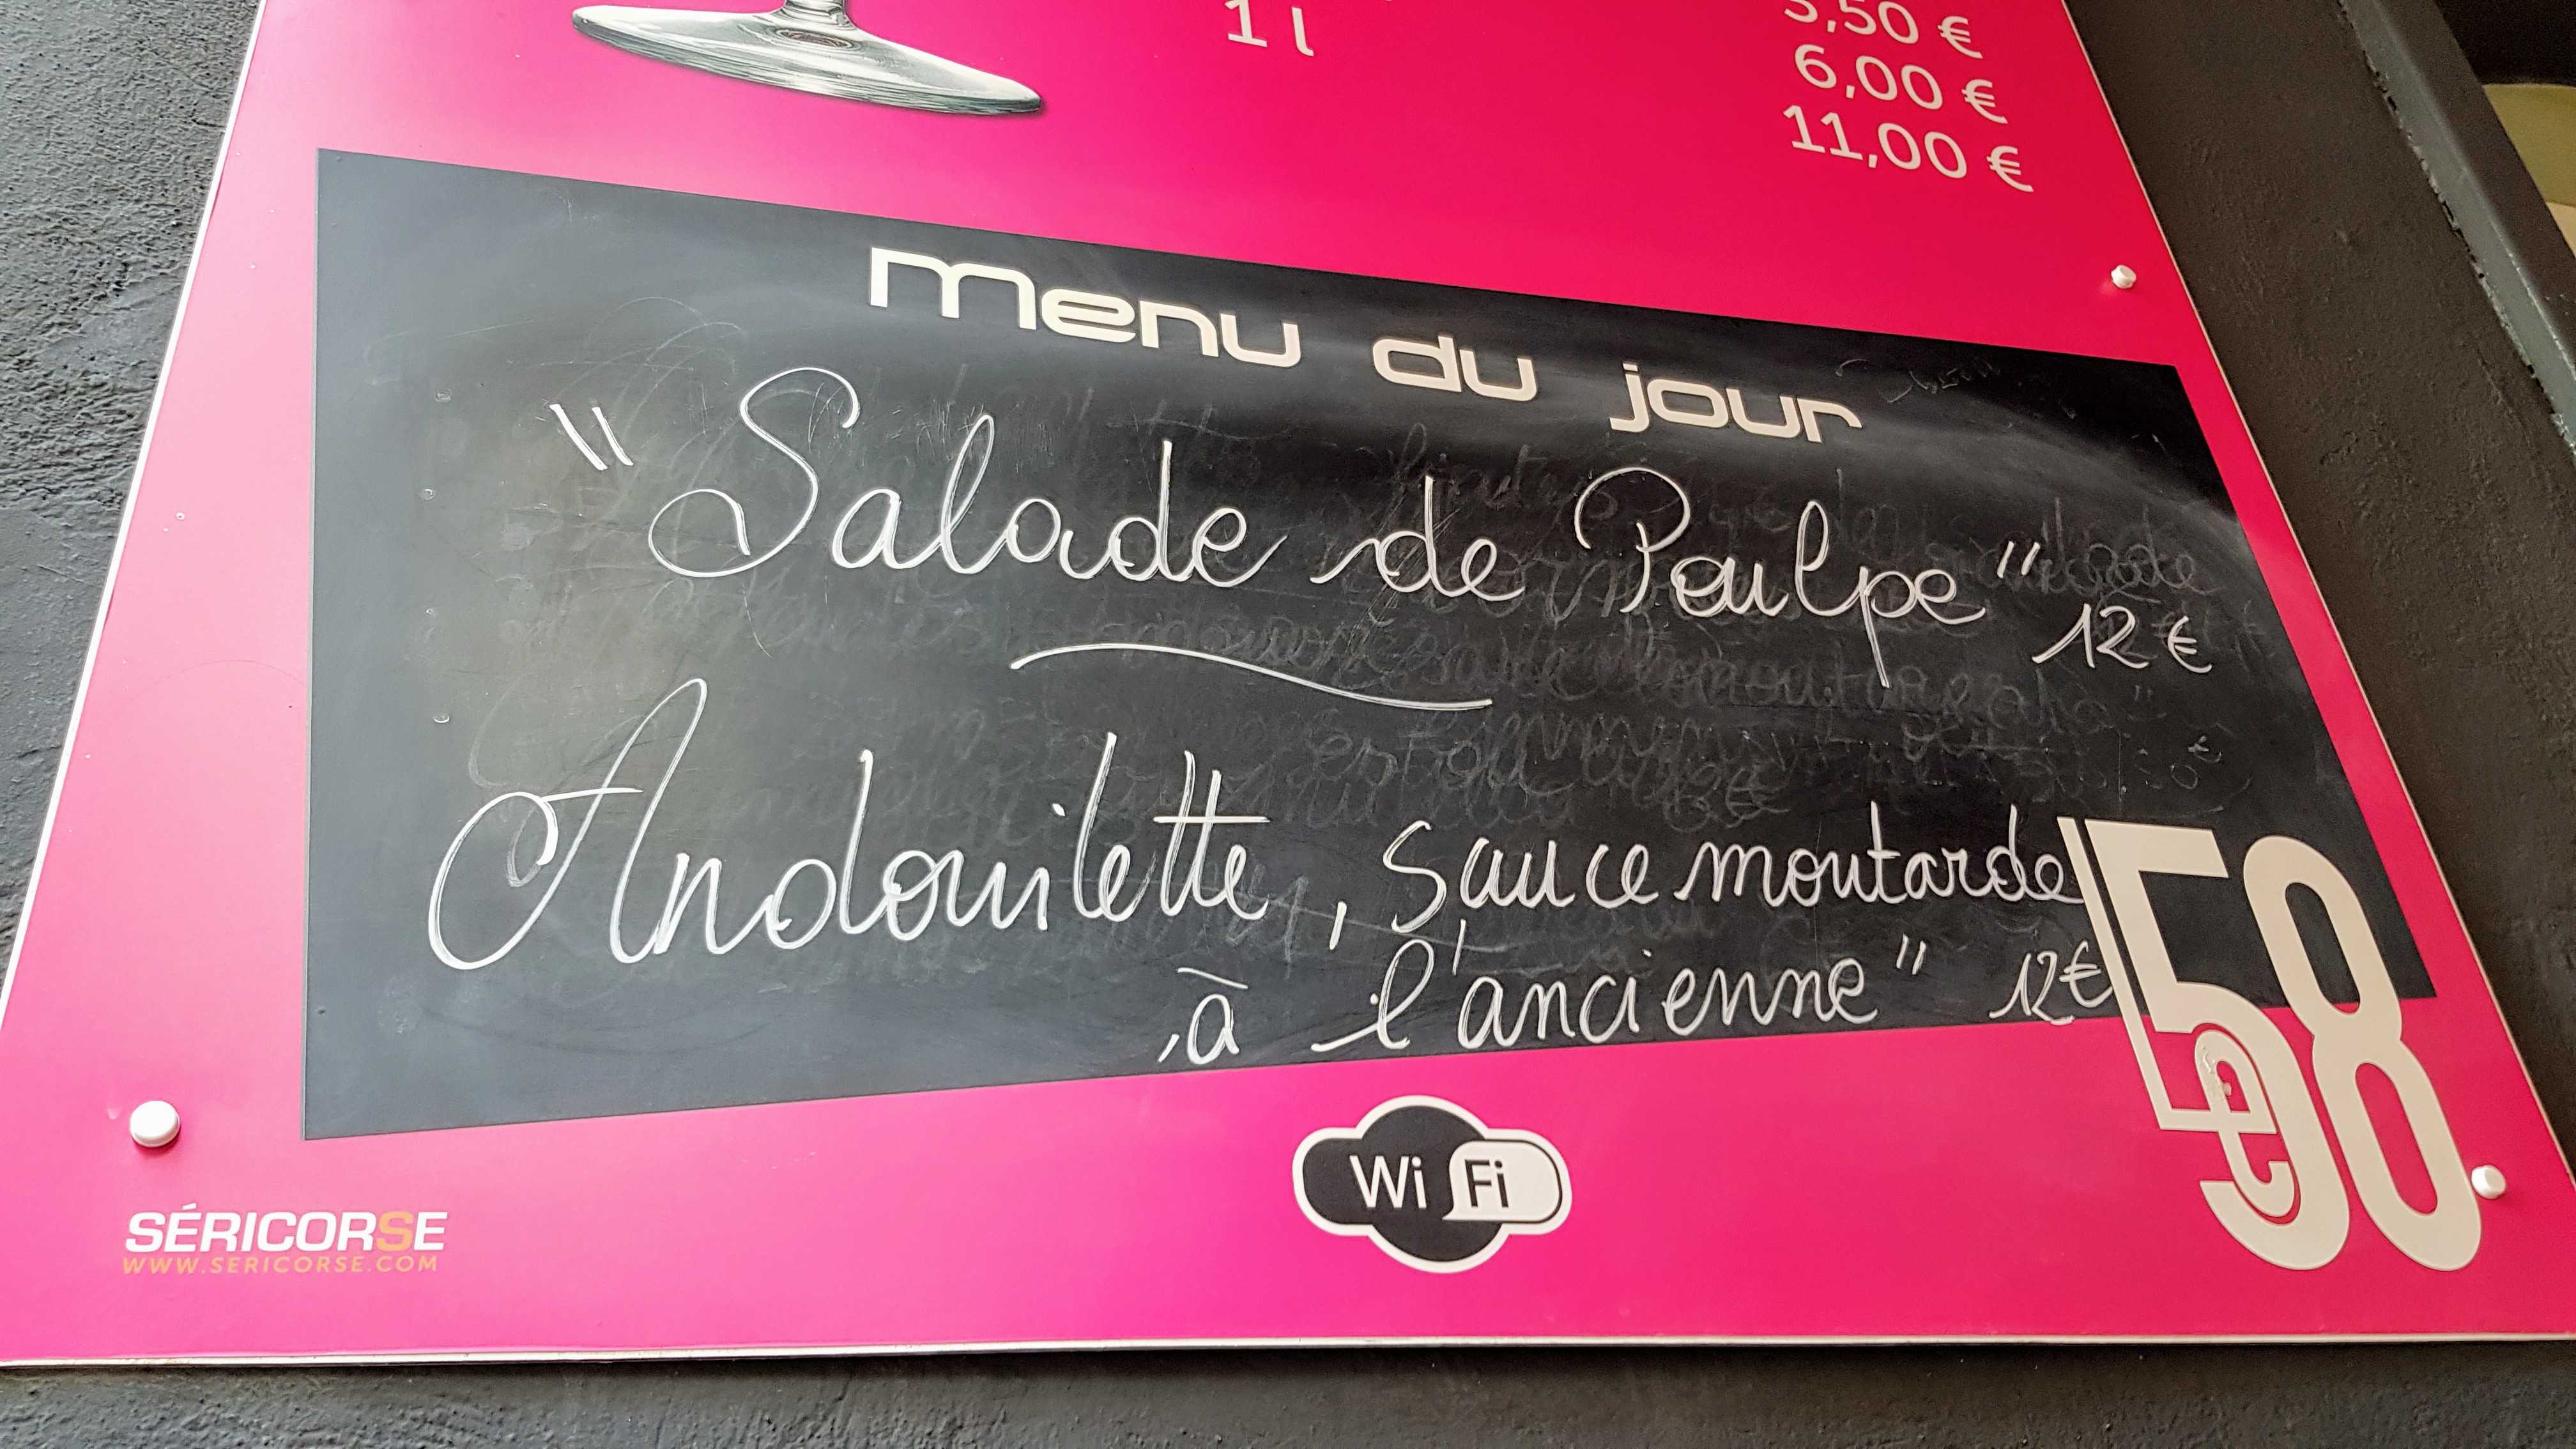 1 l
5,50 €
6,00 €
11,00 €
menu du jour
"Salade de Poulpe"
12 €
Andouilette, sauce moutarde
à l'ancienne" 12€
Le 58
Wi Fi
SÉRICORSE
WWW.SERICORSE.COM